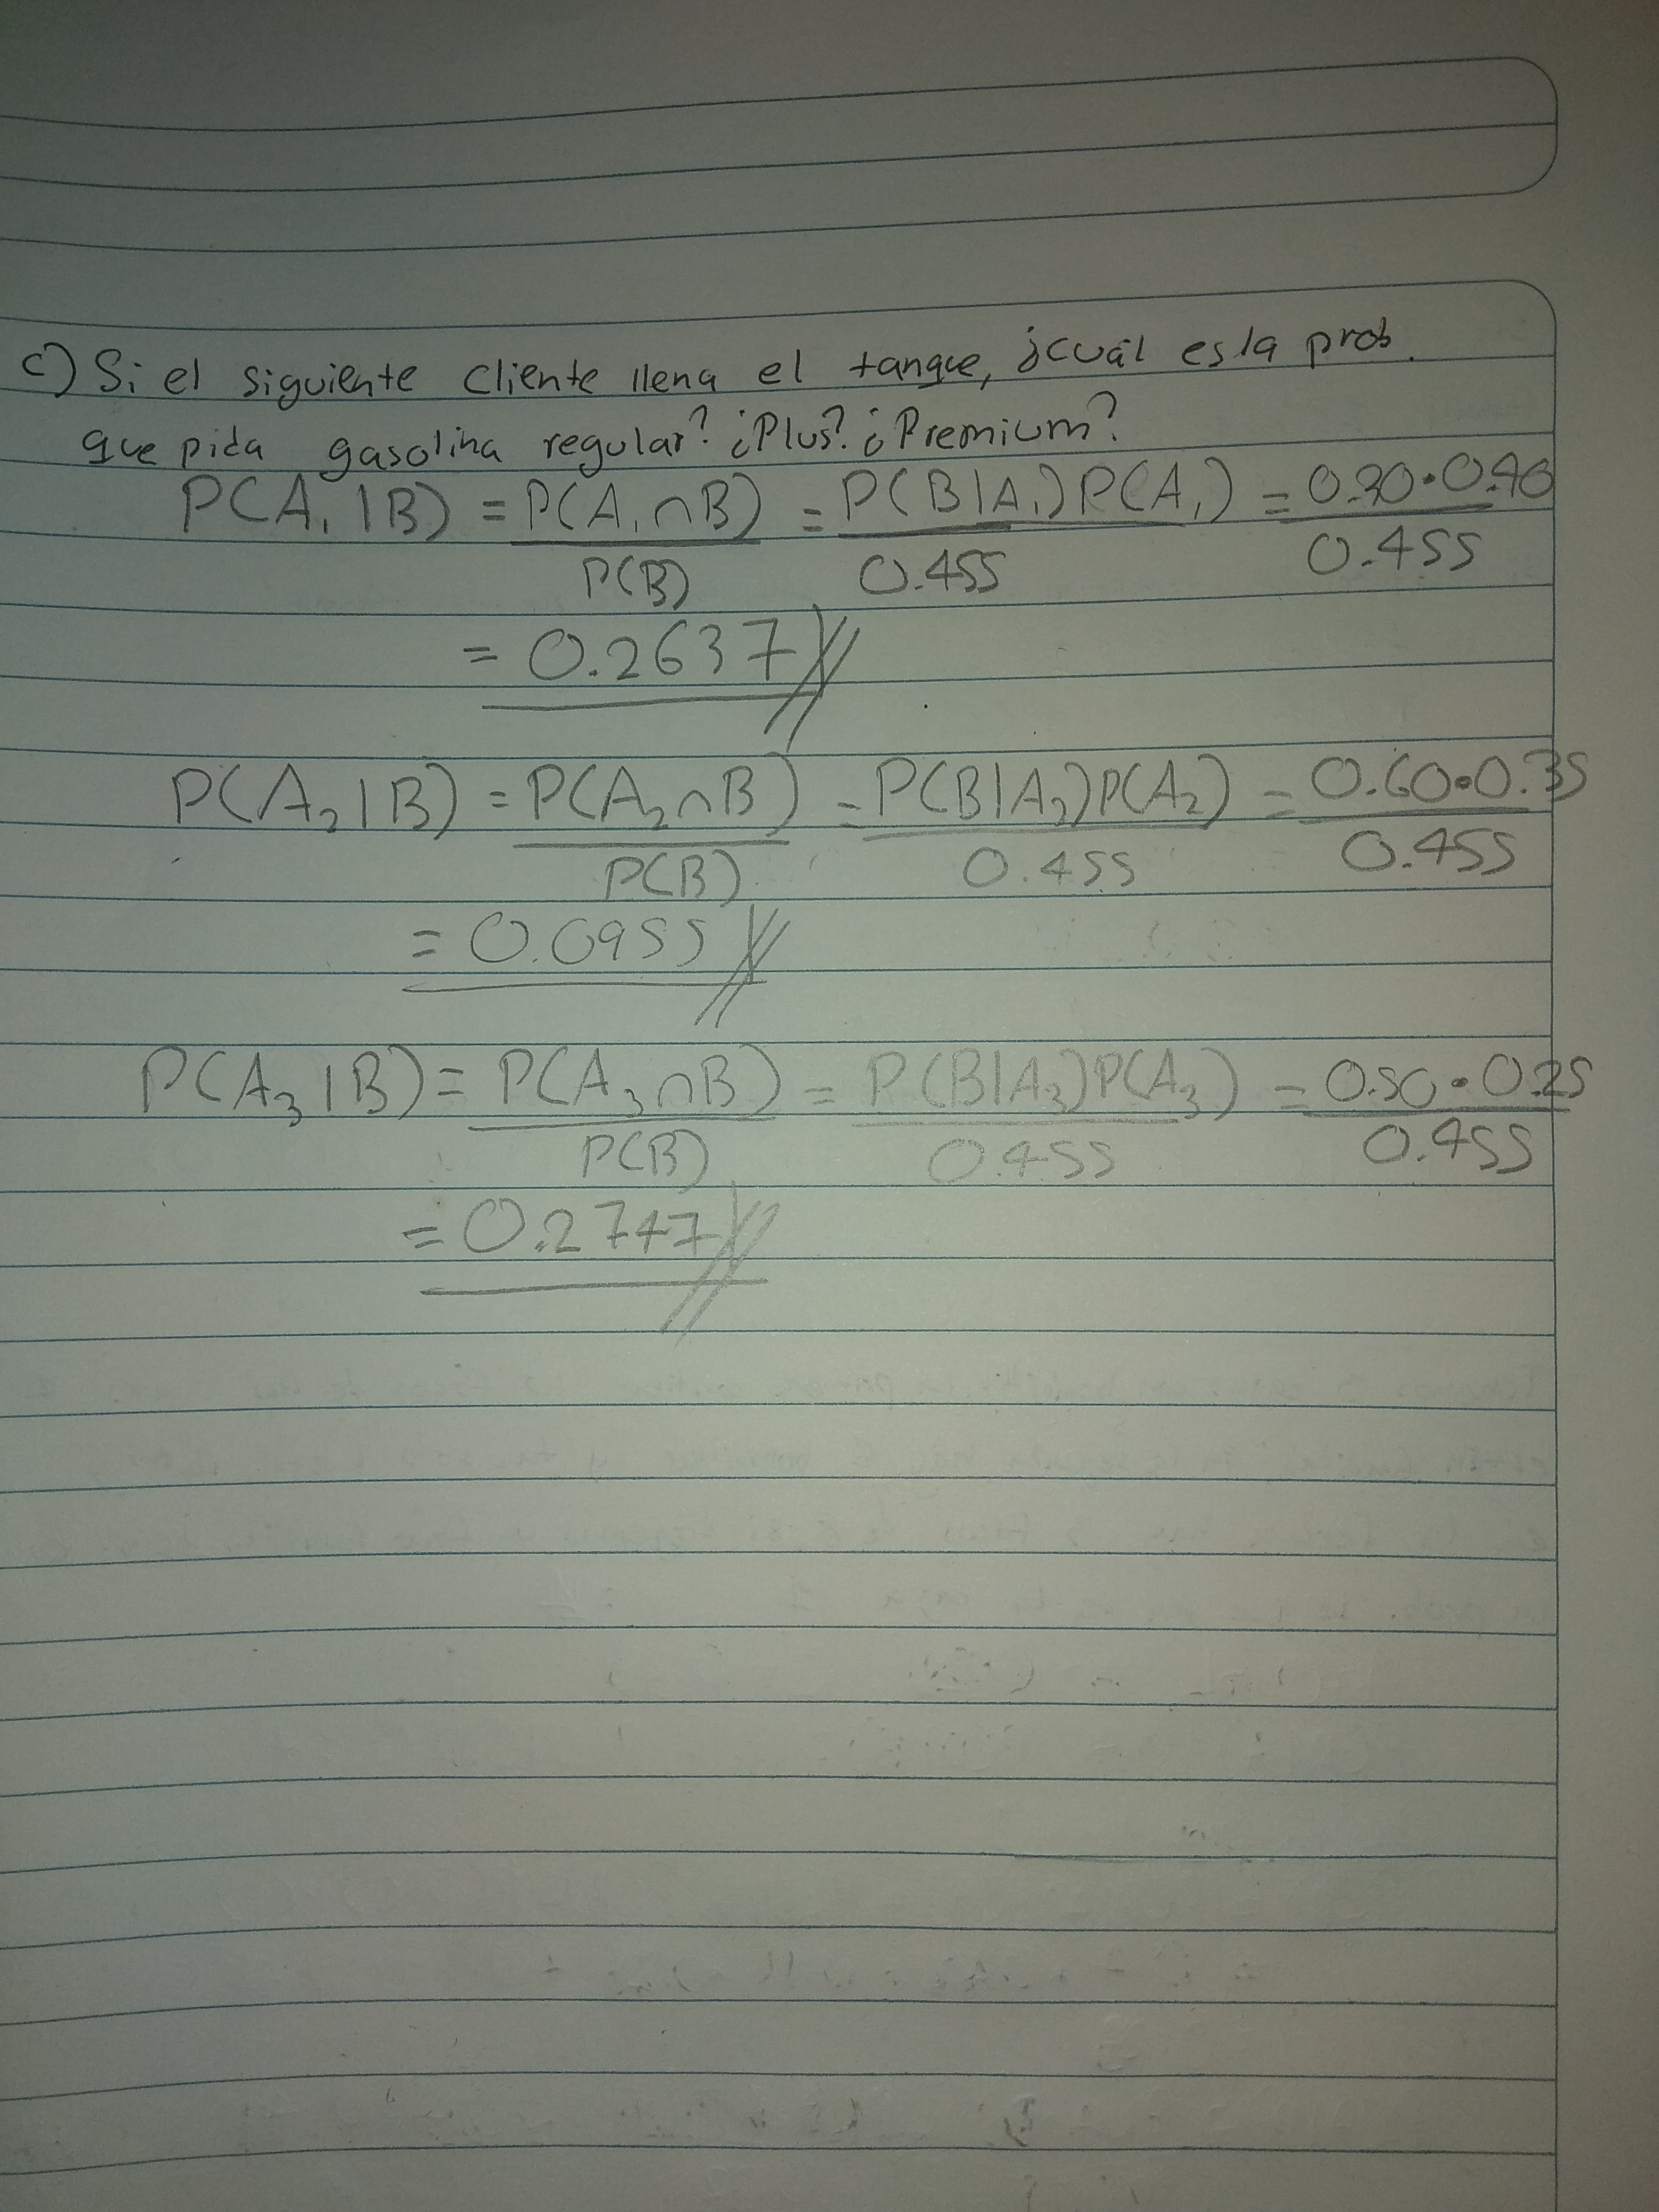 c) Si el siguiente cliente llena el tanque, ¿cuál es la prob.
que pida gasolina regular? ¿Plus? ¿Premium?
P(A₁|B) = P(A₁∩B)/P(B) = P(B|A₁)P(A₁)/0.455 = 0.30•0.40/0.455
= 0.2637
P(A₂|B) = P(A₂∩B)/P(B) = P(B|A₂)P(A₂)/0.455 = 0.60•0.35/0.455
= 0.0955
P(A₃|B) = P(A₃∩B)/P(B) = P(B|A₃)P(A₃)/0.455 = 0.50•0.25/0.455
= 0.2747